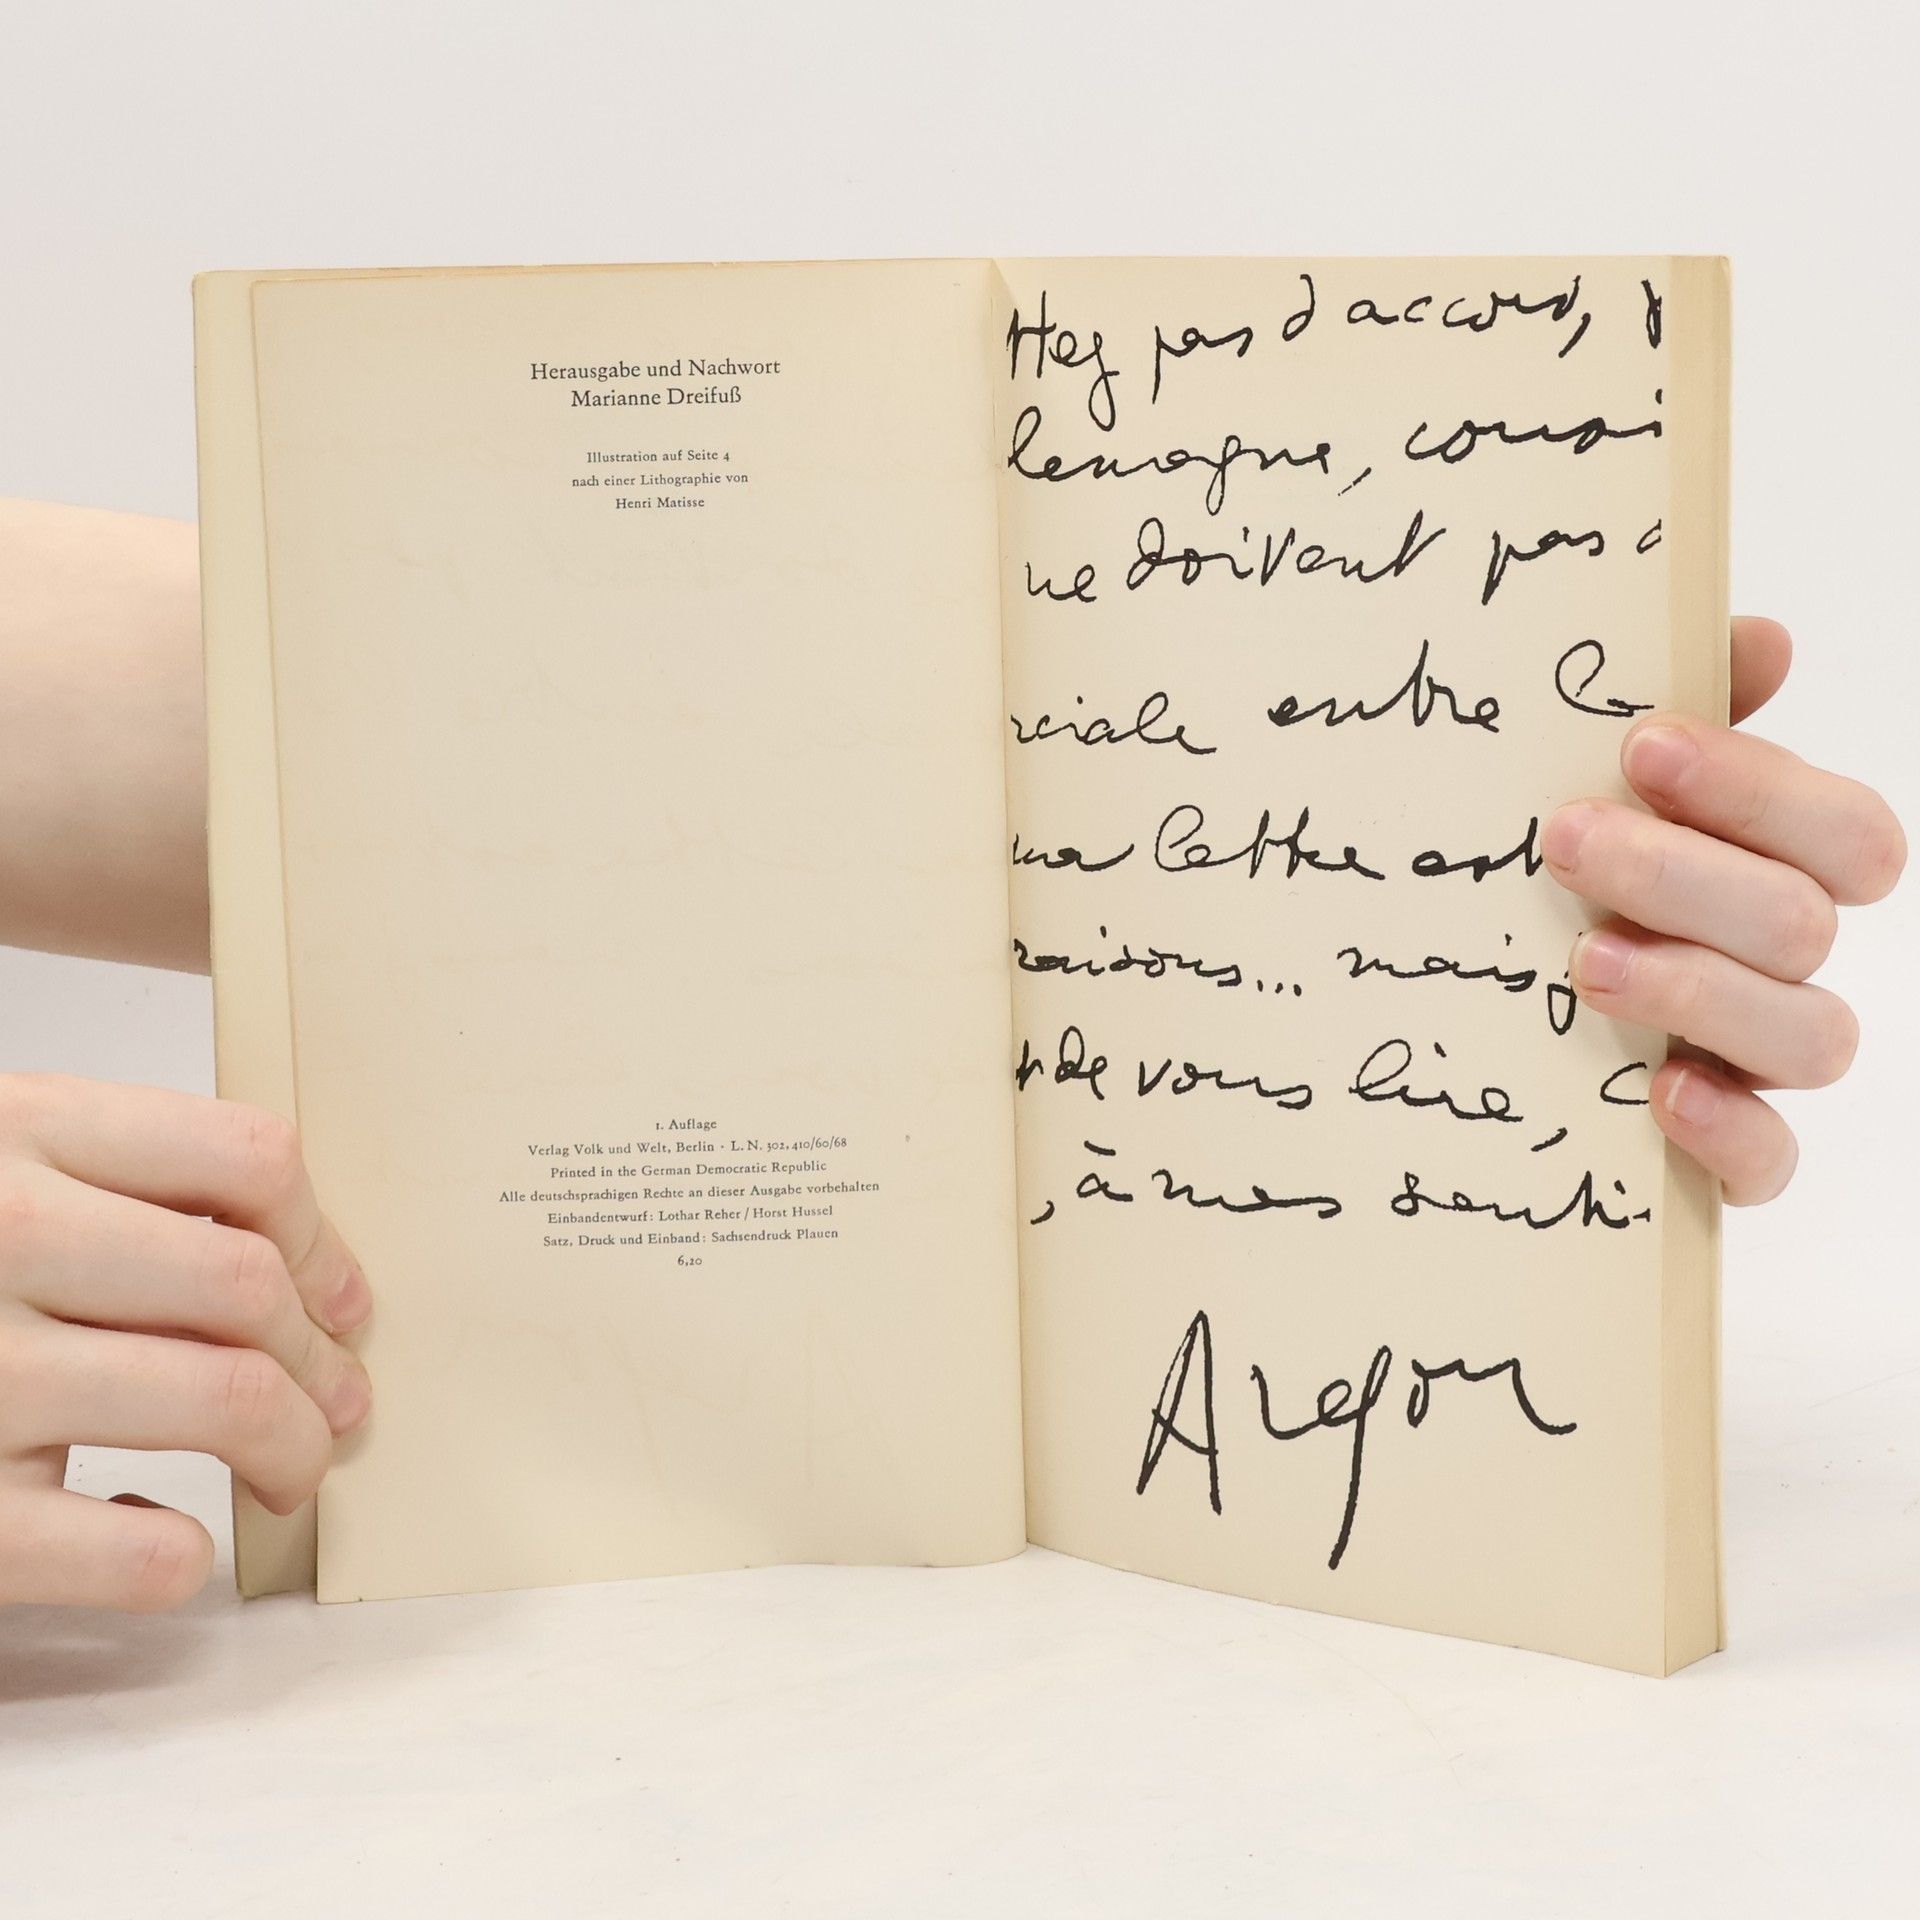 Herausgabe und Nachwort
Marianne Dreifuß
Illustration auf Seite 4
nach einer Lithographie von
Henri Matisse
1. Auflage
Verlag Volk und Welt, Berlin · L. N. 302, 410/60/68
Printed in the German Democratic Republic
Alle deutschsprachigen Rechte an dieser Ausgabe vorbehalten
Einbandentwurf: Lothar Reher / Horst Hussel
Satz, Druck und Einband: Sachsendruck Plauen
6,20
ttez pas d'accord,
lemagne,
ne doivent pas
rciale entre
ma lettre est
raisons... mais j
t de vous lire,
, à mes senti-
Aragon